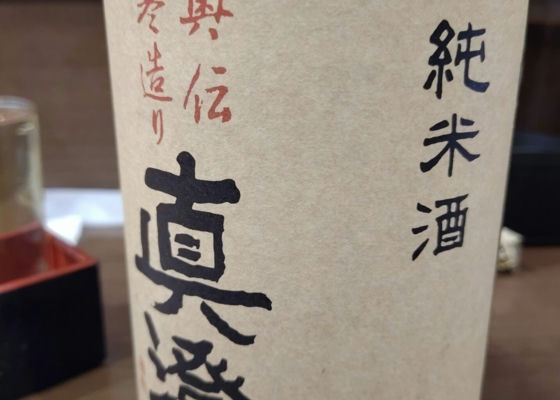 純米酒
奥伝
寒造り
真澄